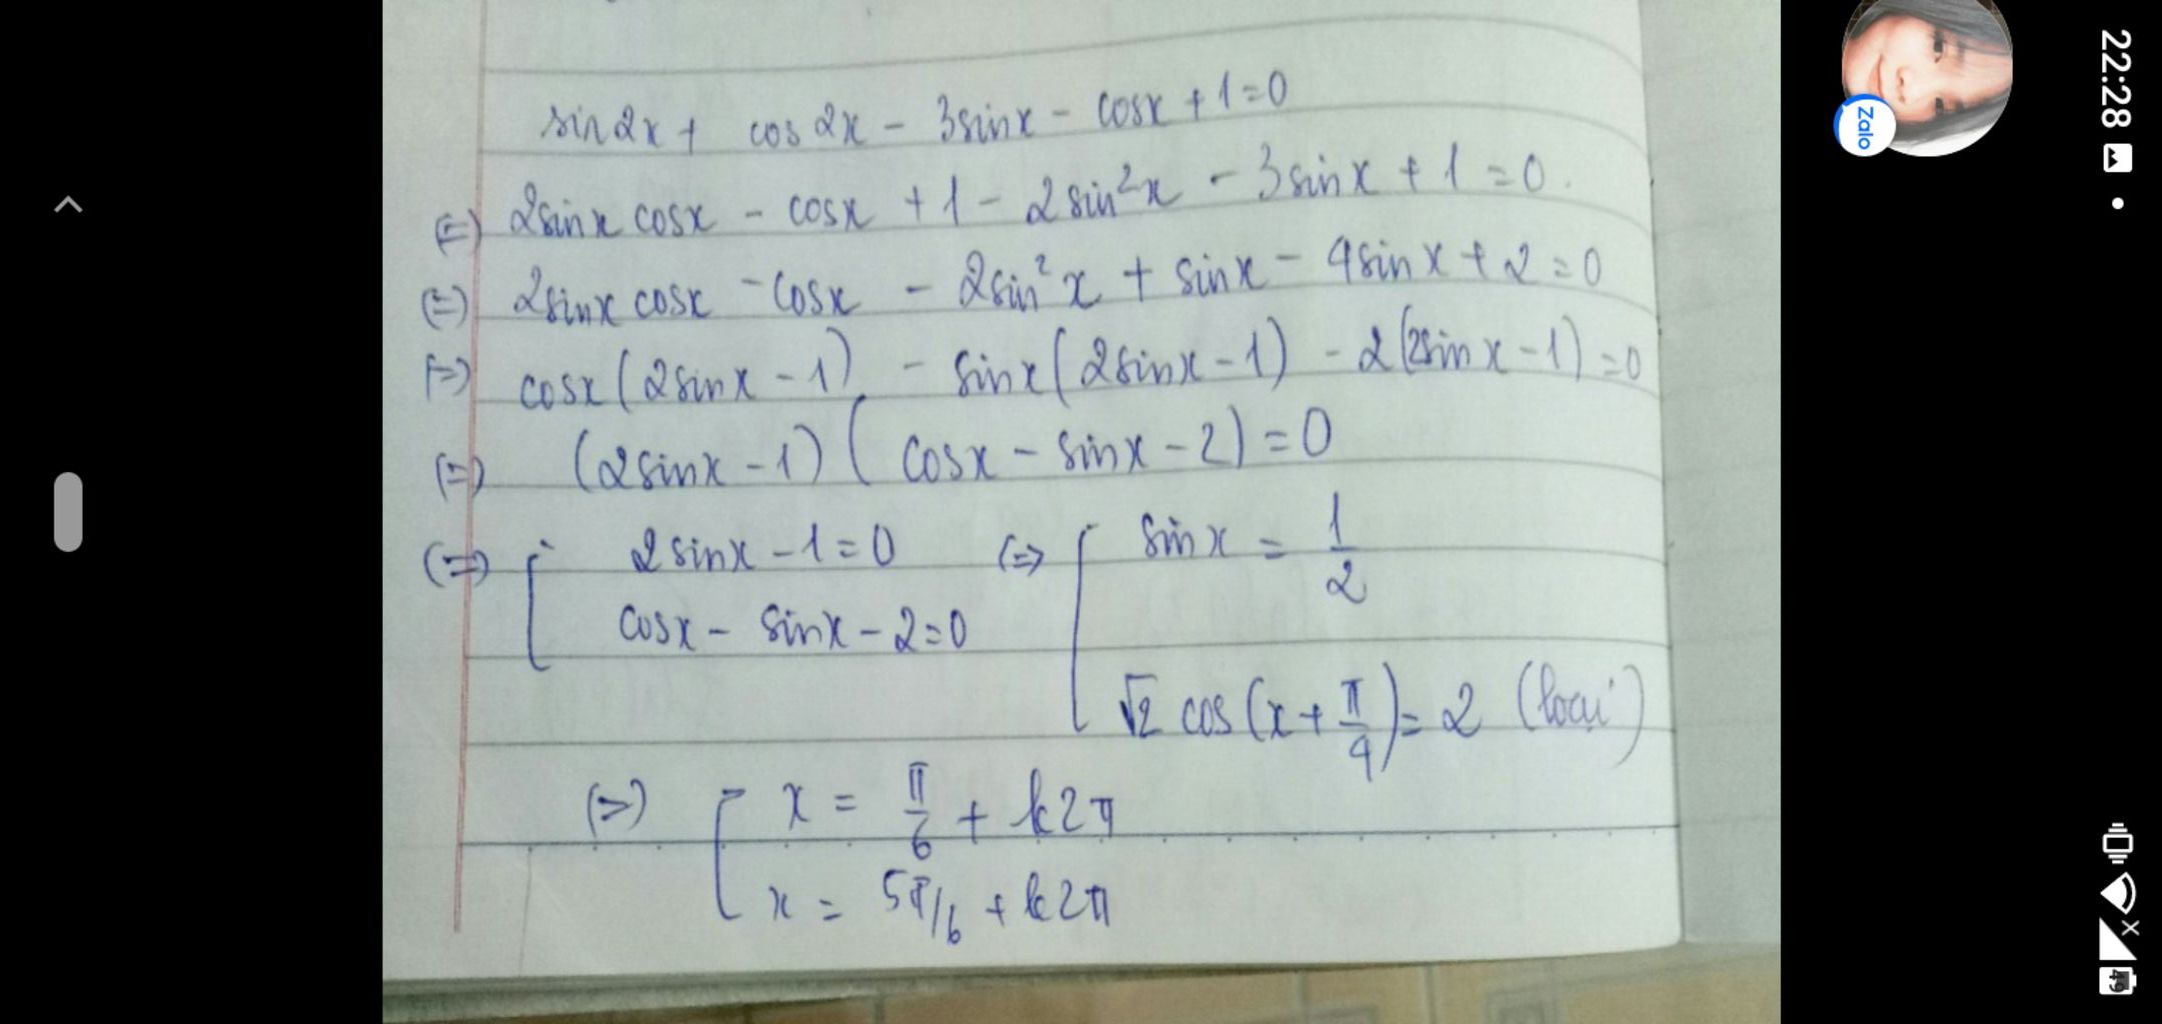 sin2x + cos2x - 3sinx - cosx + 1 = 0
(=) 2sinx cosx - cosx + 1 - 2sin²x - 3sinx + 1 = 0.
(=) 2sinx cosx - cosx - 2sin²x + sinx - 4sinx + 2 = 0
(=) cosx(2sinx - 1) - sinx(2sinx - 1) - 2(2sinx - 1) = 0
(=) (2sinx - 1)(cosx - sinx - 2) = 0
(=) [ 2sinx - 1 = 0 (=) [ sinx = 1/2
cosx - sinx - 2 = 0
√2 cos(x + π/4) = 2 (loại)
(=) [ x = π/6 + k2π
x = 5π/6 + k2π
Zalo
22:28
49